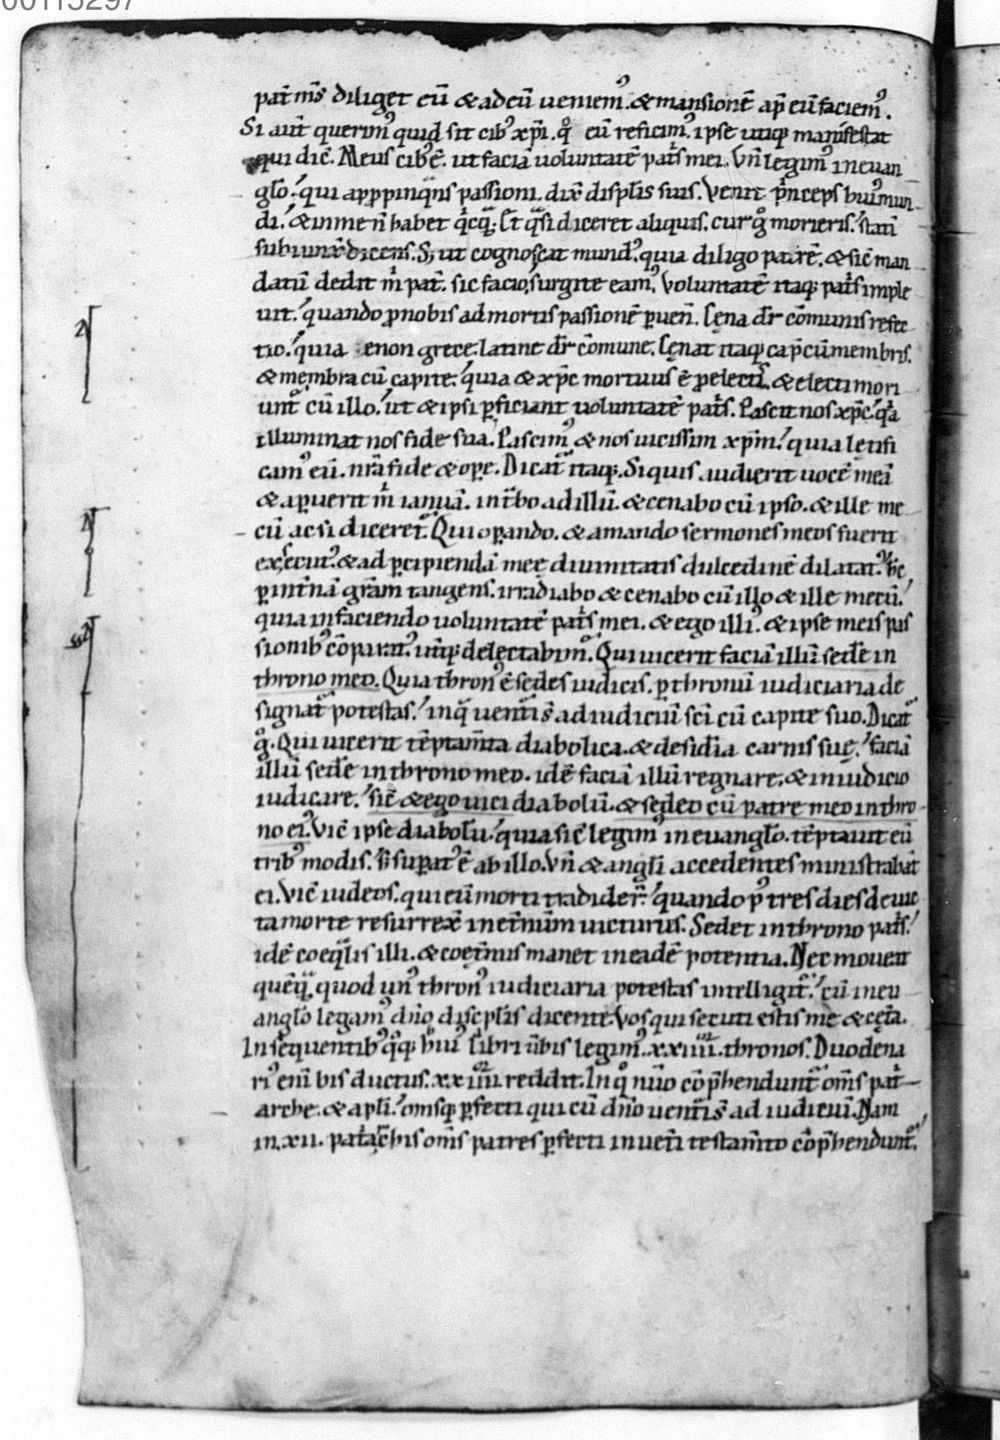 00115297
pat̄ ms̄ diliget eū & ad eū ueniemꝰ. & mansionē ap̄ eū faciemꝰ.
Si aūt querimꝰ quid sit cibꝰ xp̄i. qͦ eū reficimꝰ. ipse utiqꝫ manifestat
qui dic̄. Meus cibꝰ ē. ut faciā uoluntatē pat̄s mei. Vn̄ legimꝰ in euan
glo. qui appropinqͣns passioni. dix̄ discplis suis. Venit p̄nceps huiꝰ mun
di. & in me n̄ habet qͥcqͣ. Et qͣsi diceret aliquis. cur gͦ morieris. statī
subiunx̄ dicens. Sꝫ ut cognoscat mundꝰ. quia diligo patrē. & sic̄ man
datū dedit m̄ pat̄. sic facio. surgite eamꝰ. Voluntatē itaqꝫ pat̄s imple
uit. quando ꝓ nobis ad mortis passionē ꝑuen̄. Cena dr̄ cōmunis refec
tio. quia cenon grece. latine dr̄ cōmune. Cęnat itaqꝫ cap̄ cū membris.
& membra cū capite. quia & xp̄c mortuus ē ꝓ electis. & electi mori
unt̄ cū illo. ut & ipsi ꝑficiant uoluntatē pat̄s. Pascit nos xp̄c. qͥa
illuminat nos fide sua. Pascimꝰ & nos uicissim xp̄m. quia lętifi
camꝰ eū. nr̄a fide & ope. Dicat̄ itaqꝫ. Siquis audierit uocē meā
& apuerit m̄ ianuā. int̄bo ad illū. & cenabo cū ipso. & ille me
cū ac si diceret̄. Qui opando. & amando sermones meos fuerit
exsecutꝰ. & ad ꝑcipiendā meę diuinitatis dulcedinē dilatatꝰ. hc̄
ꝑ int̄nā gr̄am tangens. irradiabo & cenabo cū illo & ille mecū.
quia in faciendo uoluntatē pat̄s mei. & ego illiꝰ. & ipse meis pas
sionibꝰ cōparatꝰ. utiqꝫ delectabimꝰ. Qui uicerit faciā illū sedē in
throno meo. Quia thronꝰ ē sedes iudicis. ꝑ thronū iudiciaria de
signat̄ potestas. in qͣ uent̄is ad iudiciū sc̄i cū capite suo. Dicat̄
gͦ. Qui uicerit tēptam̄ta diabolica. & desid̄ia carnis suę. faciā
illū sedē in throno meo. idē faciā illū regnare. & in iudicio
iudicare. sic̄ & ego uici diabolū. & sedeo cū patre meo in thro
no eiꝰ. Vic̄ ipse diabolū. quia sic̄ legimꝰ in euanglo. tēptauit eū
tribꝰ modis. s; supatꝰ ē ab illo. Vn̄ & angli accedentes ministrabāt
ei. Vic̄ iudeos. qui eū morti tradider̄. quando pꝰ tres dies deuic
ta morte resurrex̄ in et̄num uicturus. Sedet in throno pat̄s.
idē coeqͣlis illi. & coęt̄nus manet in eadē potentia. Nec moueat
quēqͣ. quod unꝰ thronꝰ iudiciaria potestas intelligit̄. cū in eu
anglo legamꝰ dn̄o discplis dicente. Vos qui secuti estis me & cęt̄a.
In sequentibꝰ qͦqꝫ hꝰiꝰ libri ūbis legimꝰ. xxiiii. thronos. Duodena
riꝰ enī bis ductus. xxiiii. reddit. In qͦ nūo cōp̄hendunt̄ om̄s pat̄
arche. & apli. omsqꝫ ꝑfecti qui cū dn̄o uent̄i s̄ ad iudiciū. Nam
in. xii. pat̄archis om̄s patres ꝑfecti in uet̄i testam̄to cōp̄hendunt̄.